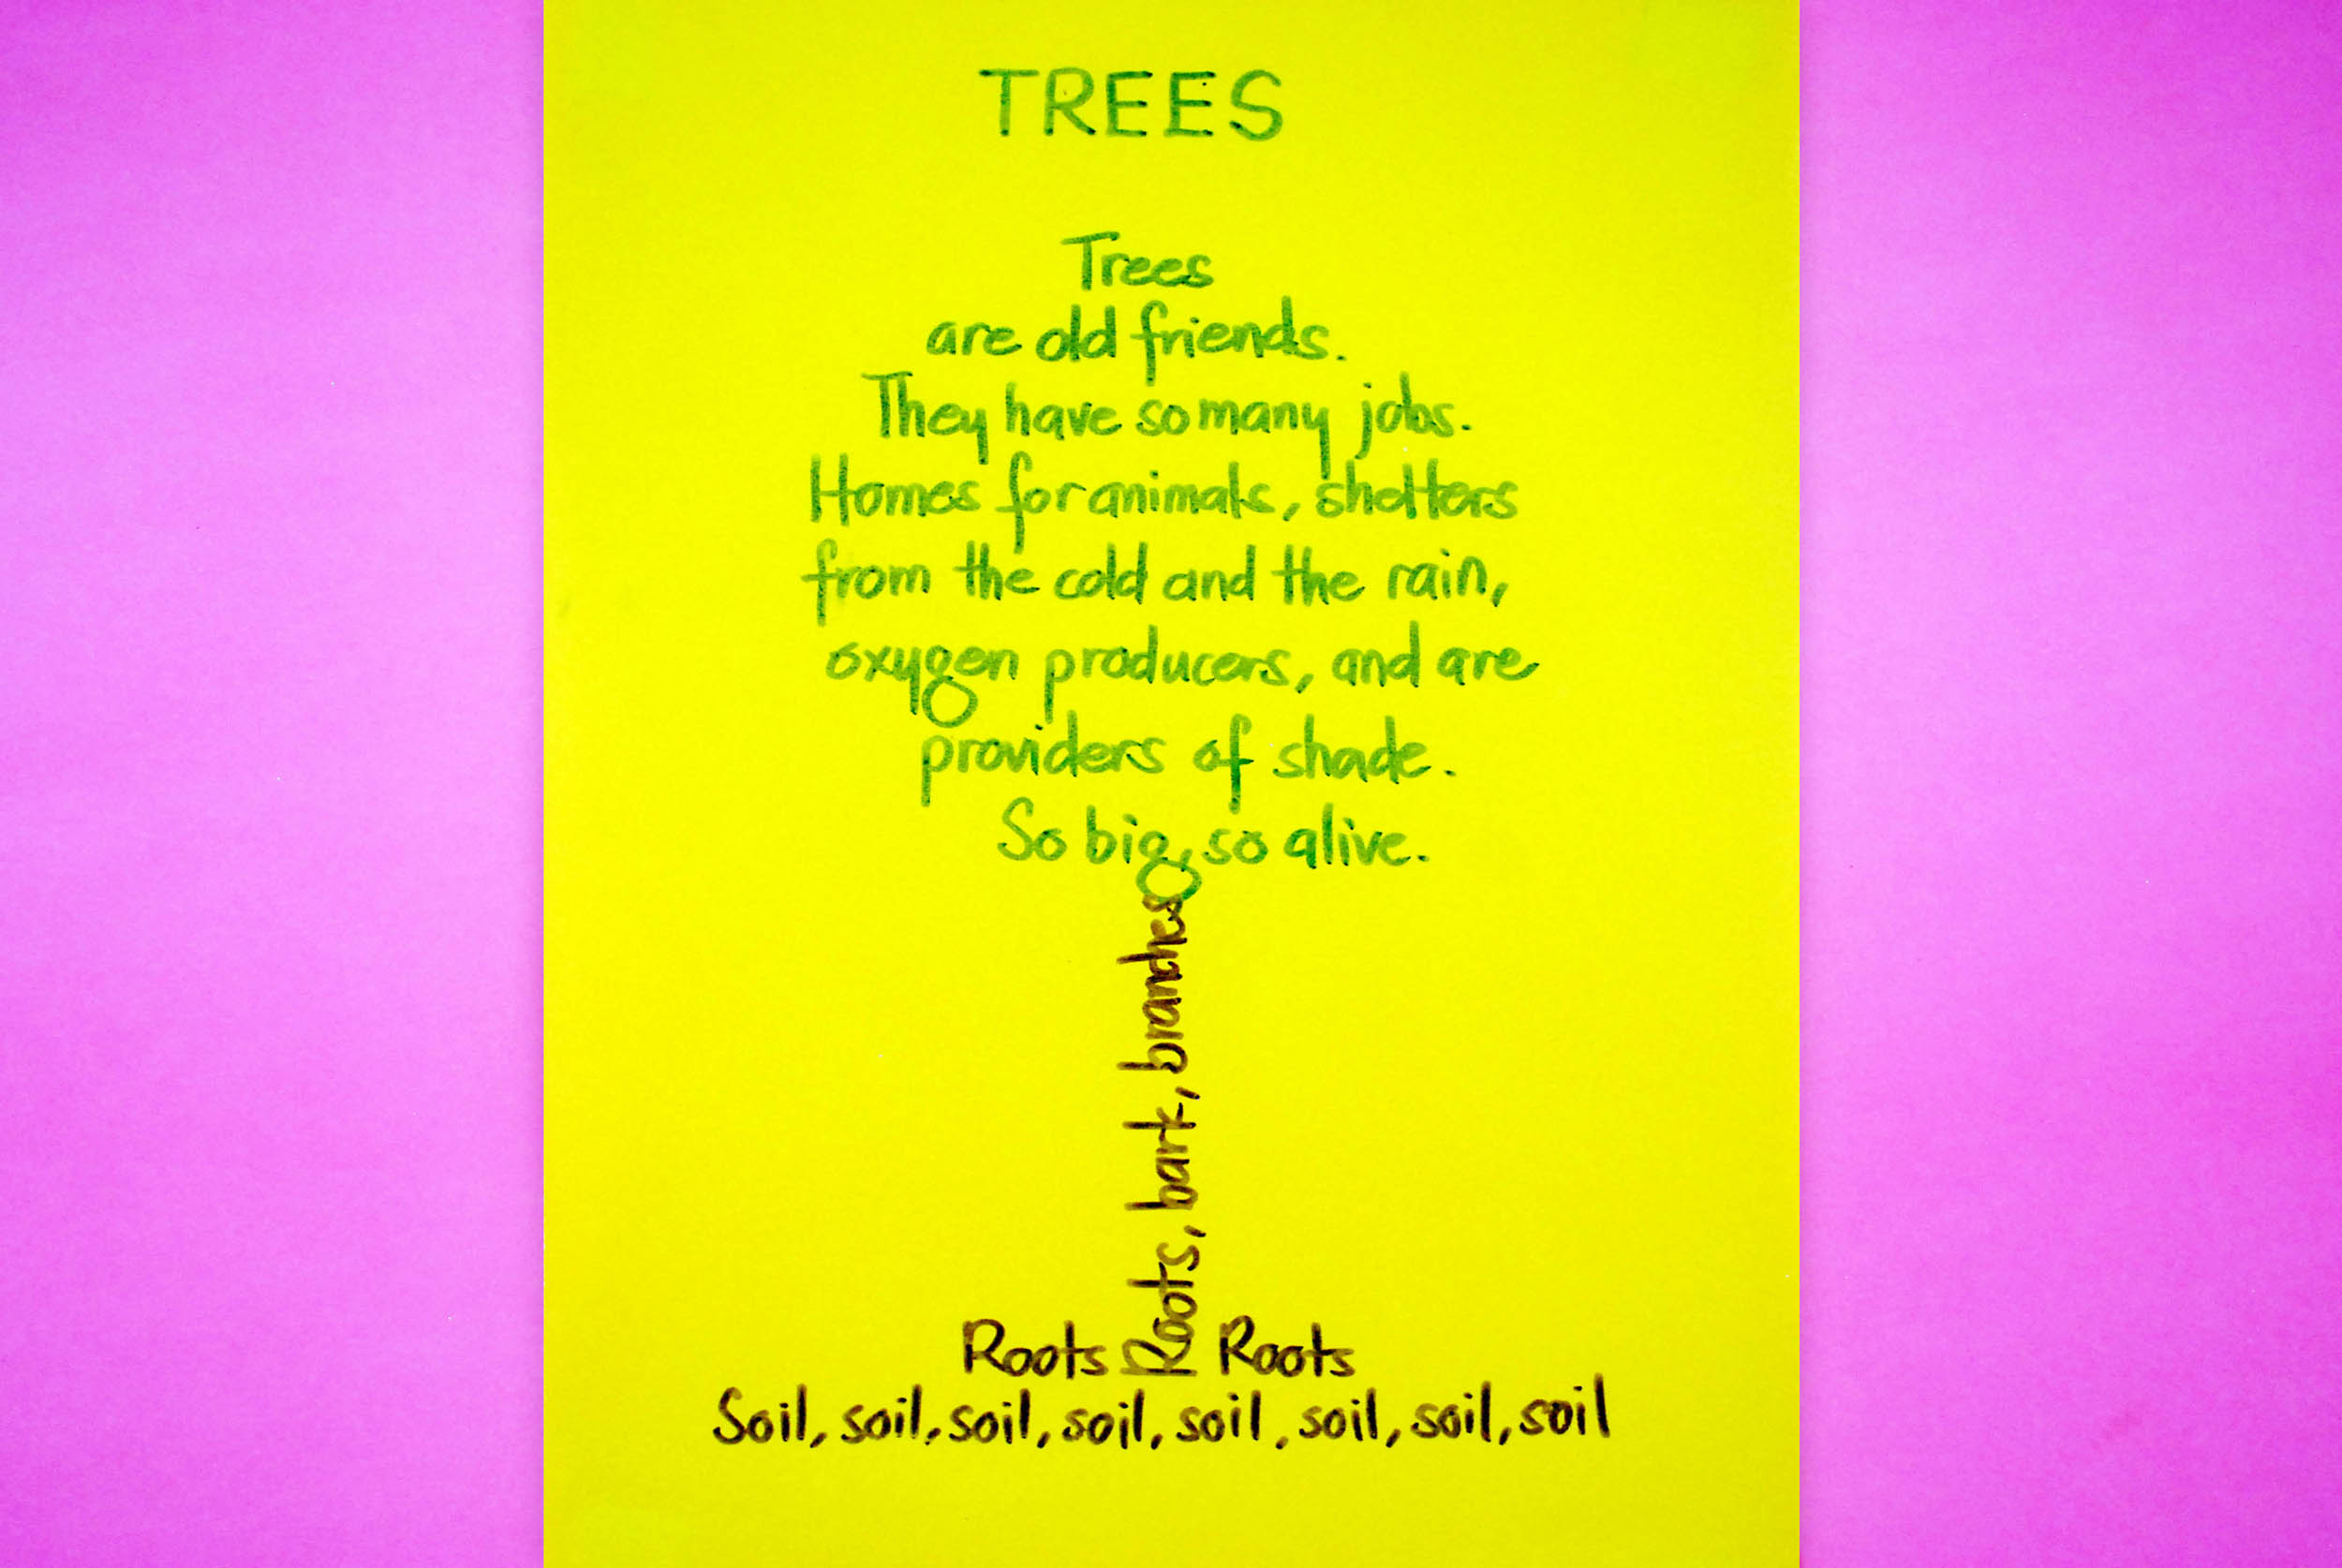 TREES
Trees
are old friends.
They have so many jobs.
Homes for animals, shelters
from the cold and the rain,
oxygen producers, and are
providers of shade.
So big, so alive.
Roots, bark, branches
Roots Roots
Soil, soil, soil, soil, soil, soil, soil, soil